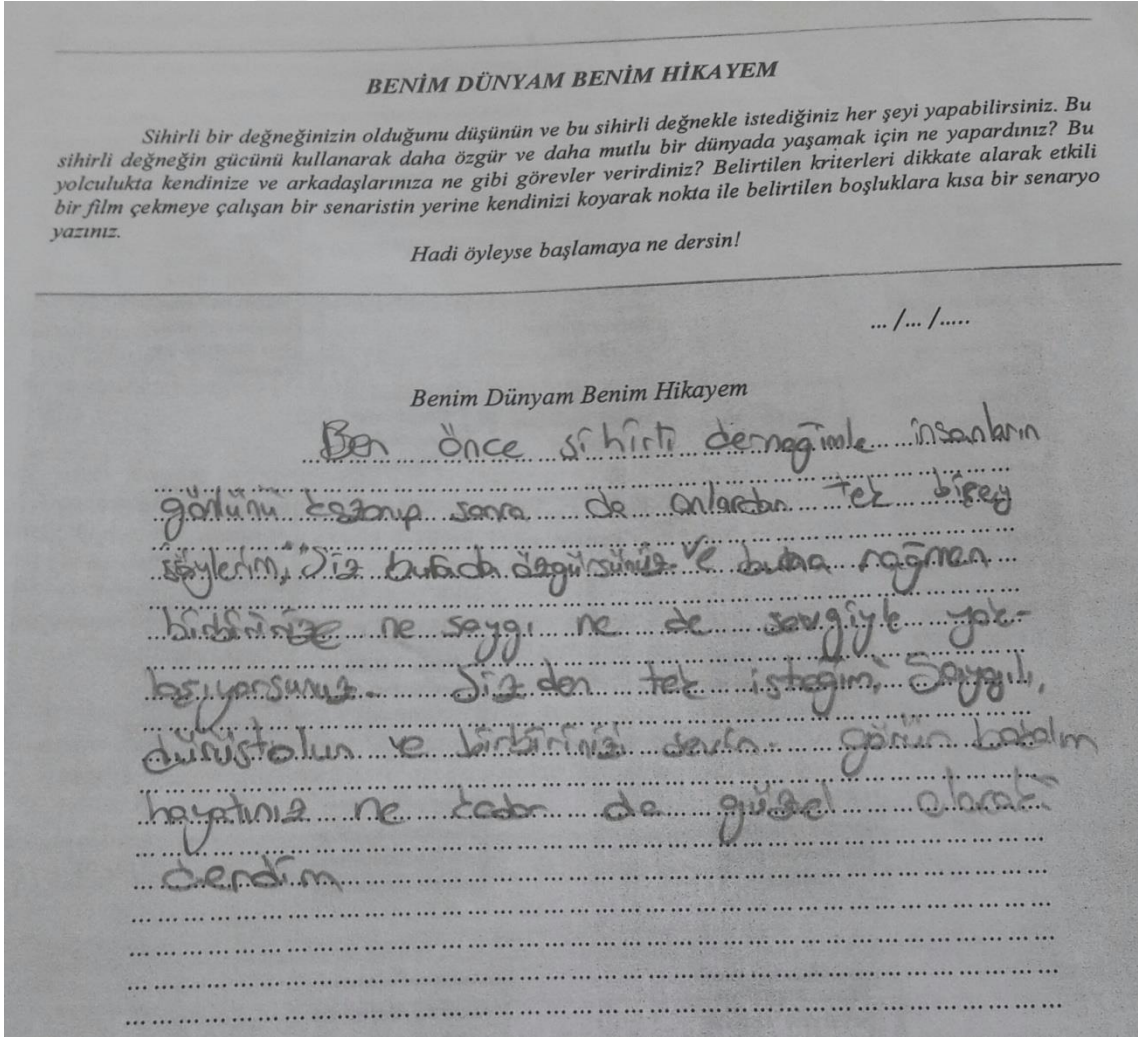 BENİM DÜNYAM BENİM HİKAYEM
Sihirli bir değneğinizin olduğunu düşünün ve bu sihirli değnekle istediğiniz her şeyi yapabilirsiniz. Bu
sihirli değneğin gücünü kullanarak daha özgür ve daha mutlu bir dünyada yaşamak için ne yapardınız? Bu
yolculukta kendinize ve arkadaşlarınıza ne gibi görevler verirdiniz? Belirtilen kriterleri dikkate alarak etkili
bir film çekmeye çalışan bir senaristin yerine kendinizi koyarak nokta ile belirtilen boşluklara kısa bir senaryo
yazınız.
Hadi öyleyse başlamaya ne dersin!
... /... /.....
Benim Dünyam Benim Hikayem
Ben önce sihirli derneğimle insanların
gönlünü kazanıp sonra da onlardan tek bişey
söylerim, "Siz burada özgürsünüz. Ve buna rağmen
birbirinize ne saygı ne de sevgiyle yak-
laşıyorsunuz. Sizden tek isteğim, Saygılı,
dürüst olun ve birbirinizi sevin. görün bakalım
hayatınız ne kadar da güzel olacak"
derdim